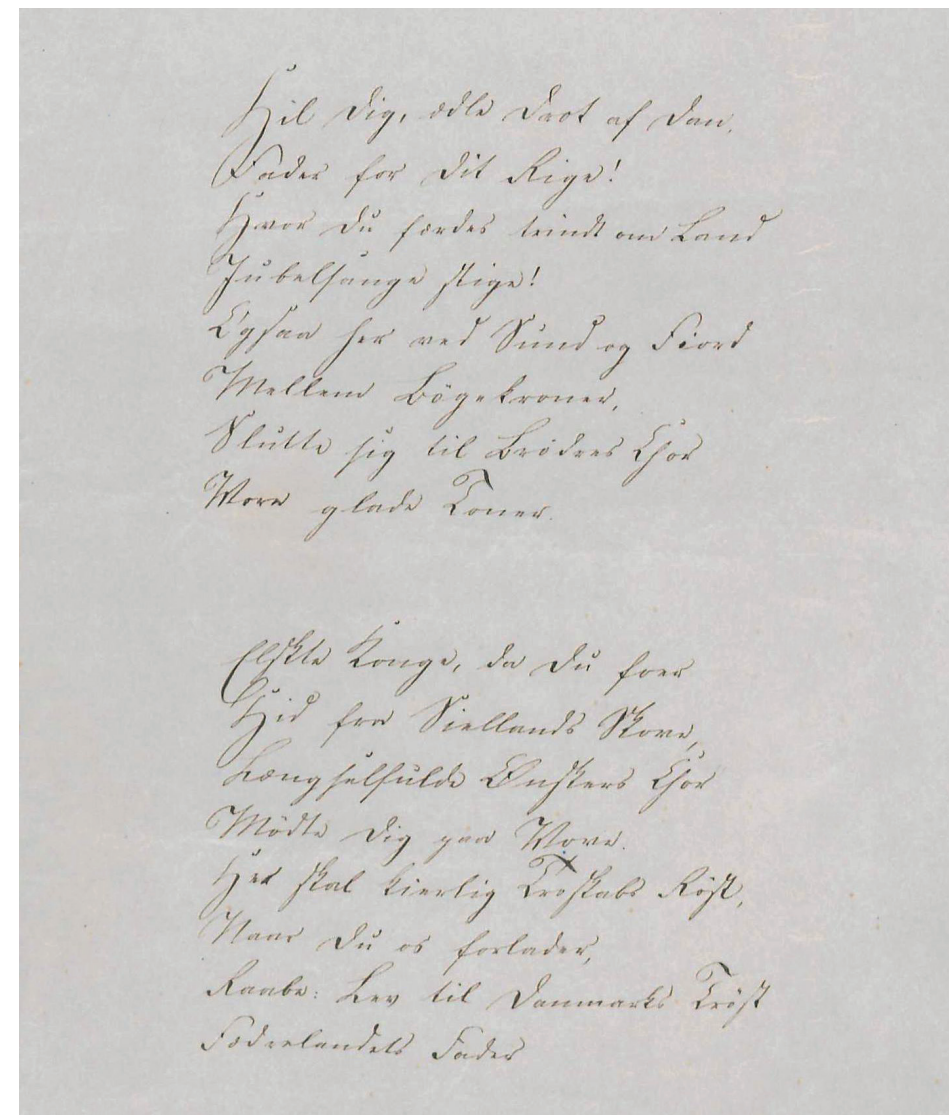 Hil Dig, ædle Drot af Dan,
Fader for Dit Rige!
Hvor Du færdes trindt om Land
Jubelsange stige!
Ogsaa her ved Sund og Fiord
Mellem Bögekroner,
Slutte sig til Brødres Chor
Vore glade Toner.
Elskte Konge, da Du foer
Hid fra Siellands Skove,
Længselfulde Ønskers Chor
Mödte Dig paa Vove.
Her skal kierlig Troskabs Röst,
Naar Du os forlader,
Raabe: Lev til Danmarks Tröst
Fædrelandets Fader